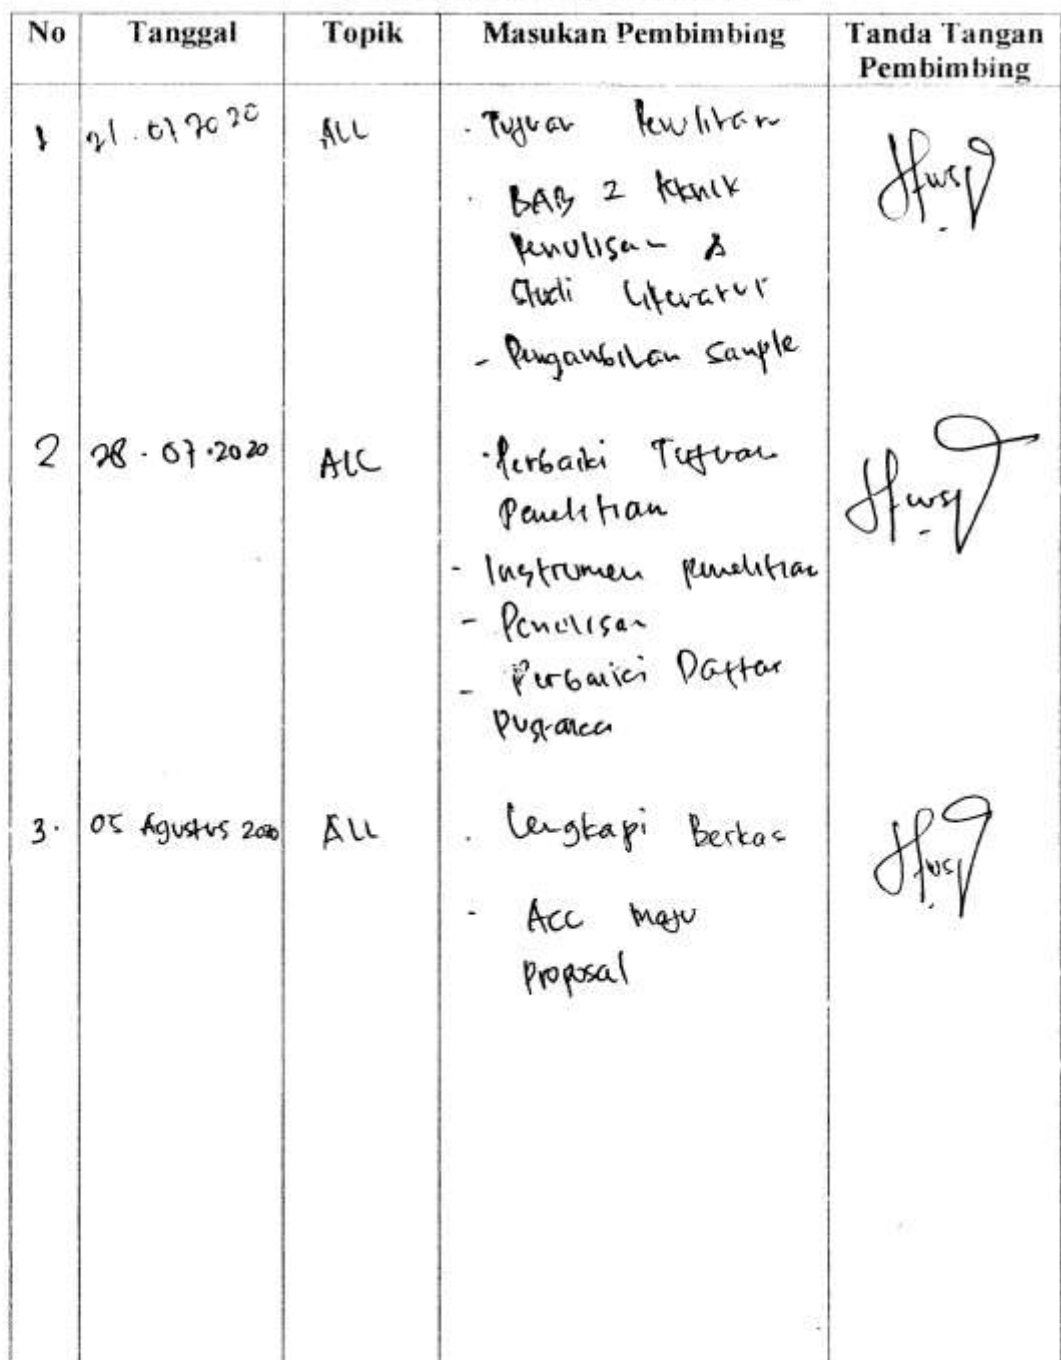 No Tanggal Topik Masukan Pembimbing Tanda Tangan Pembimbing
1 21.07 2020 ALL - Tujuan Penelitian
- BAB 2 teknik
Penulisan &
Studi Literatur
- Pengambilan Sample
2 28.07.2020 ALL - Perbaiki Tujuan
Penelitian
- Instrumen penelitian
- Penulisan
- Perbaiki Daftar
Pustaka
3. 05 Agustus 2020 ALL - Lengkapi Berkas
- Acc maju
Proposal